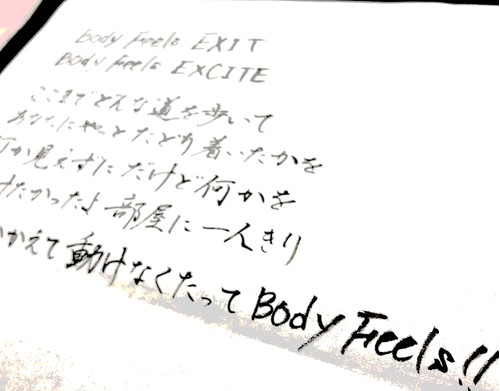 Body Feels EXIT
Body Feels EXCITE
ここまでどんな道を歩いて
あなたにやっとたどり着いたかを
何か見えずにだけど何かを
けたかったよ部屋に一人きり
かかえて動けなくたってBody Feels!!